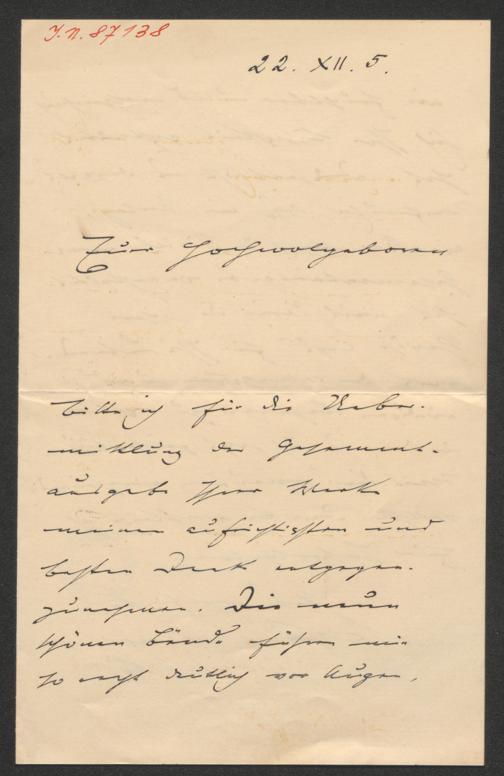 J.N. 87138
22. XII. 5.
Euer Hochwolgeboren
bitte ich für die Ueber-
mittlung der Gesammt-
ausgabe Ihrer Werke
meinen aufrichtigsten und
besten Dank entgegen-
zunehmen. Die neun
schönen Bände führen mir
so recht deutlich vor Augen,